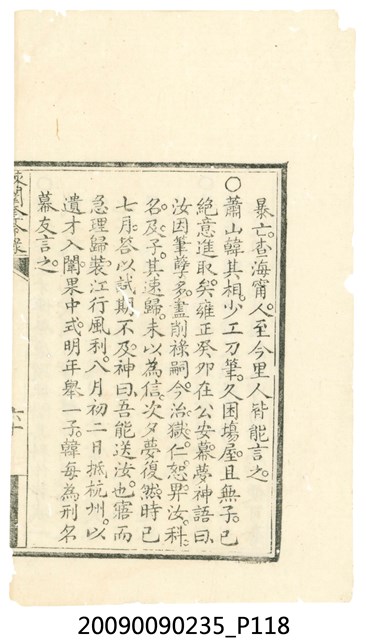 暴亡。査海甯人。至今里人皆能言之。
○蕭山韓其相。少工刀筆。久困塲屋。且無子。已
絶意進取矣。雍正癸卯在公安幕。夢神語曰。
汝因筆孽多。盡削祿嗣。今治獄。仁恕。畀汝。科
名及子。其速歸。未以為信。次夕夢復然。時已
七月。答以試期不及。神曰。吾能送汝也。寤而
急理歸裝。江行風利。八月初二日抵杭州。以
遺才入闈。果中式。明年舉一子。韓每為刑名
幕友言之。
六十
20090090235_P118